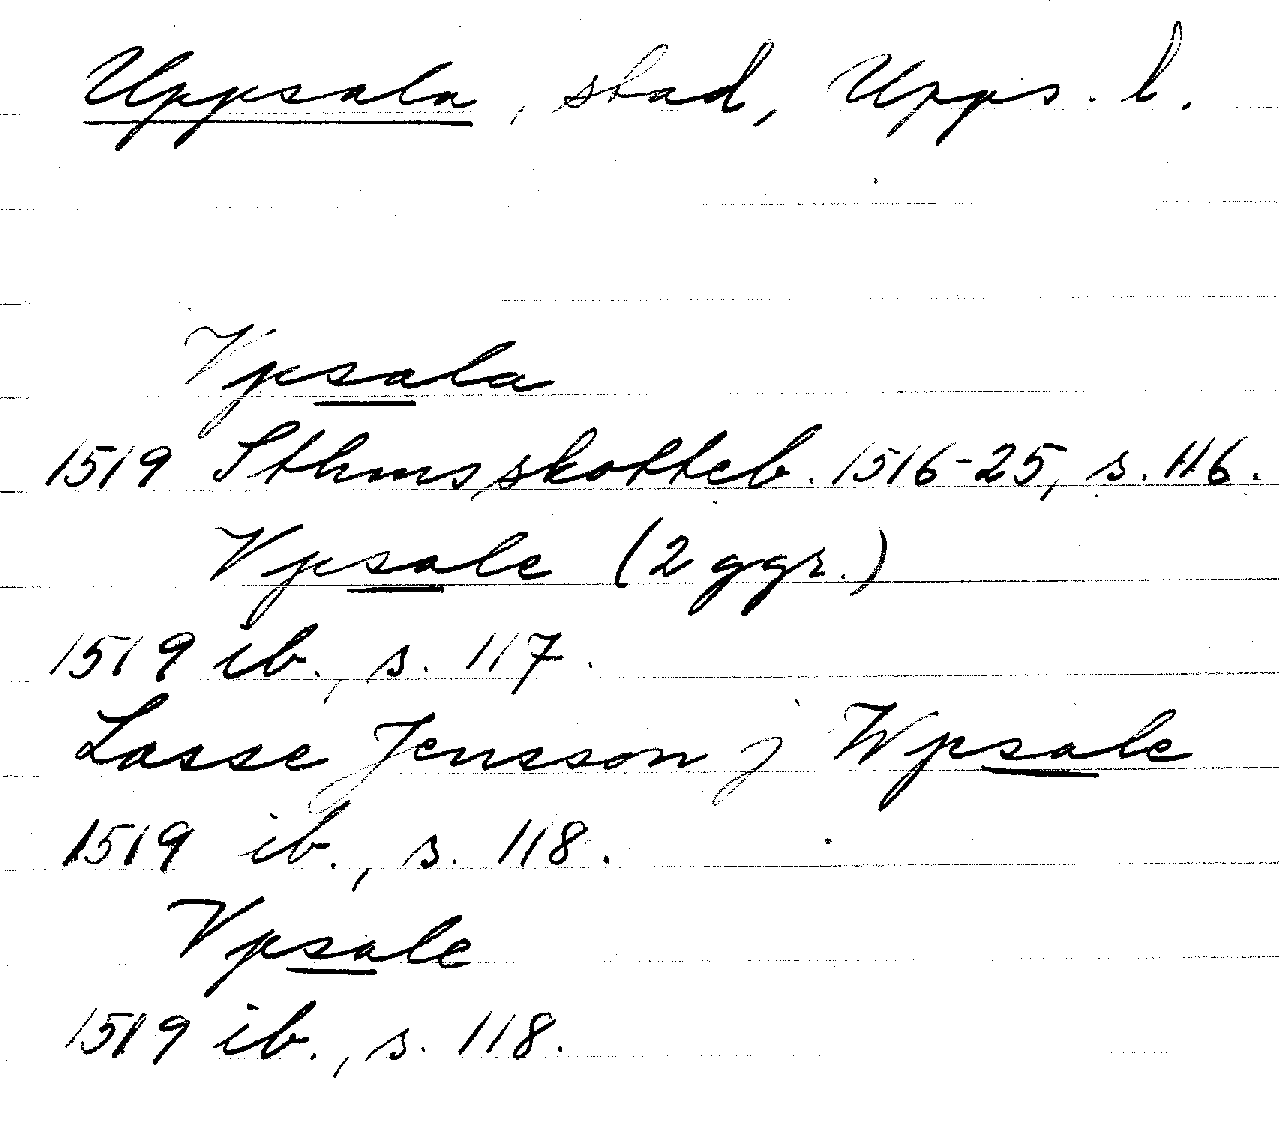 Uppsala, stad, Upps. l.
Vpsala
1519 Sthms skotteb. 1516-25, s. 116.
Vpsale (2 ggr.)
1519 ib., s. 117.
Lasse Jensson j Wpsale
1519 ib., s. 118.
Vpsale
1519 ib., s. 118.